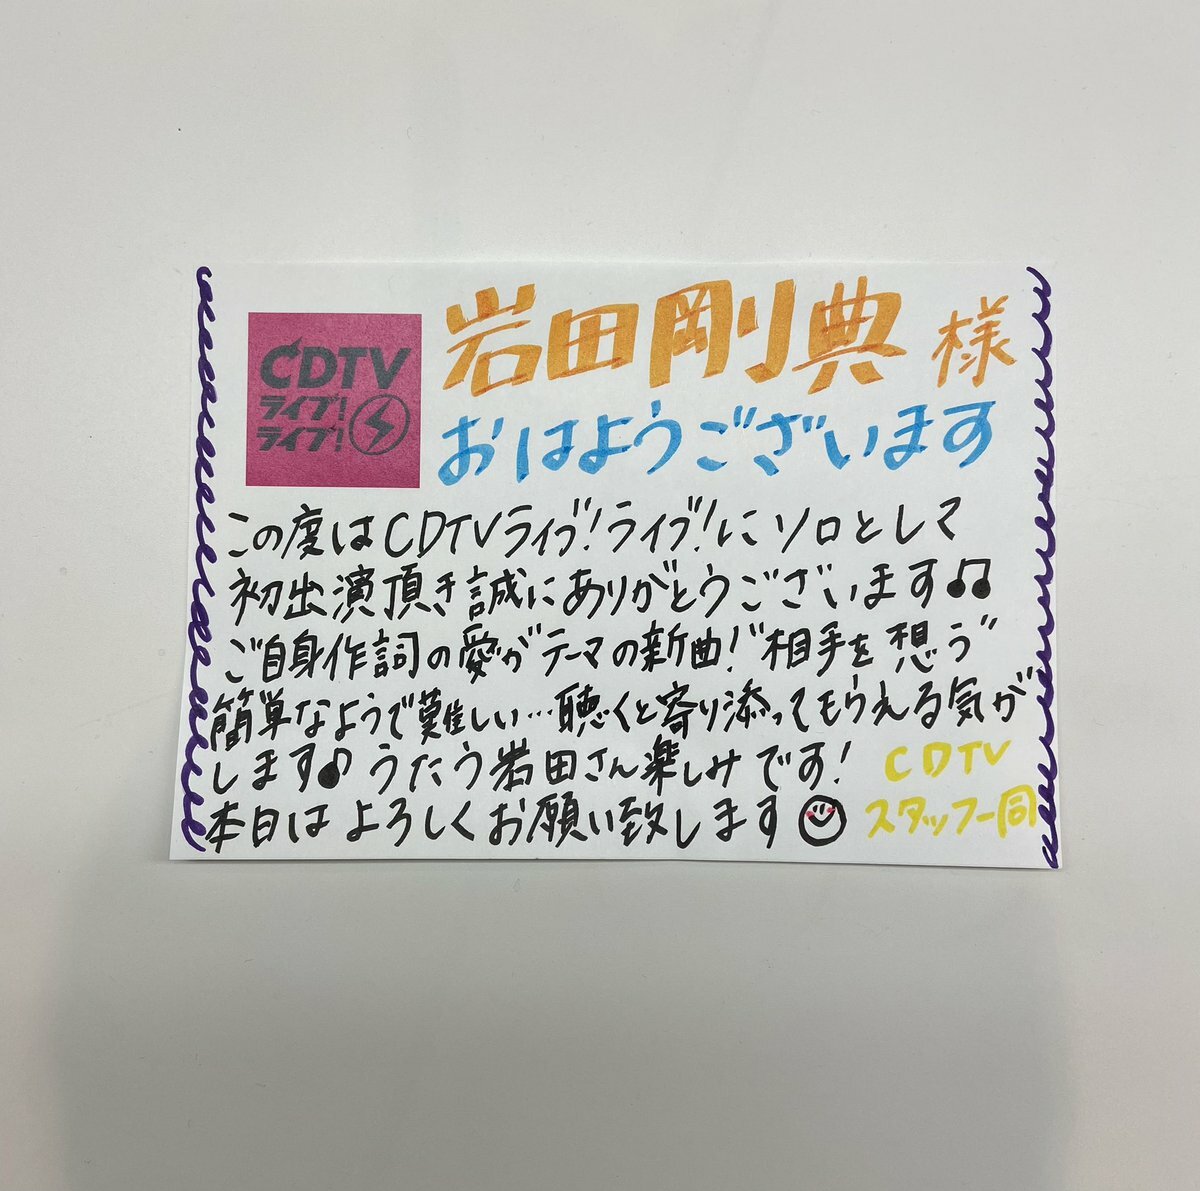 CDTV
ライブ!
ライブ!
岩田剛典 様
おはようございます
この度はCDTVライブ!ライブ!にソロとして
初出演頂き誠にありがとうございます♫
ご自身作詞の愛がテーマの新曲!"相手を想う"
簡単なようで難しい…聴くと寄り添ってもらえる気が
します♪うたう岩田さん楽しみです!
本日はよろしくお願い致します
CDTV
スタッフ一同